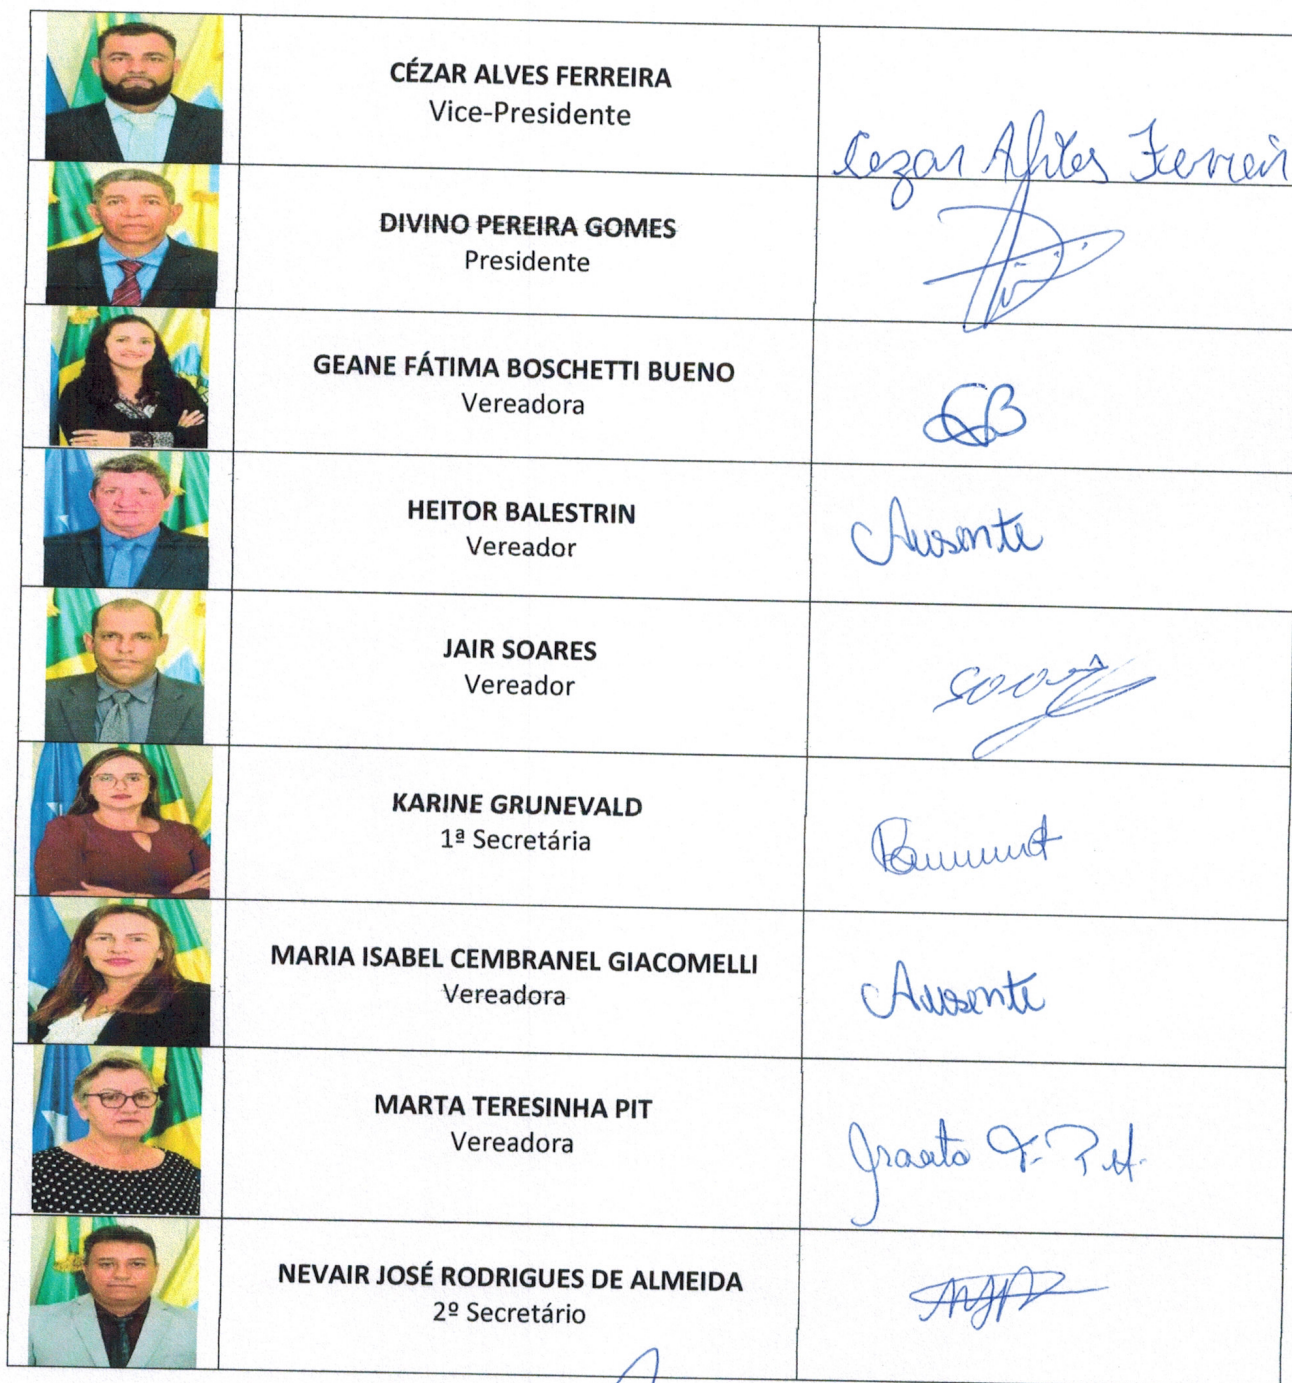 CÉZAR ALVES FERREIRA
Vice-Presidente
Cezar Alves Ferreir
DIVINO PEREIRA GOMES
Presidente
GEANE FÁTIMA BOSCHETTI BUENO
Vereadora
GB
HEITOR BALESTRIN
Vereador
Ausente
JAIR SOARES
Vereador
KARINE GRUNEVALD
1ª Secretária
MARIA ISABEL CEMBRANEL GIACOMELLI
Vereadora
Ausente
MARTA TERESINHA PIT
Vereadora
Marta T. Pit.
NEVAIR JOSÉ RODRIGUES DE ALMEIDA
2º Secretário